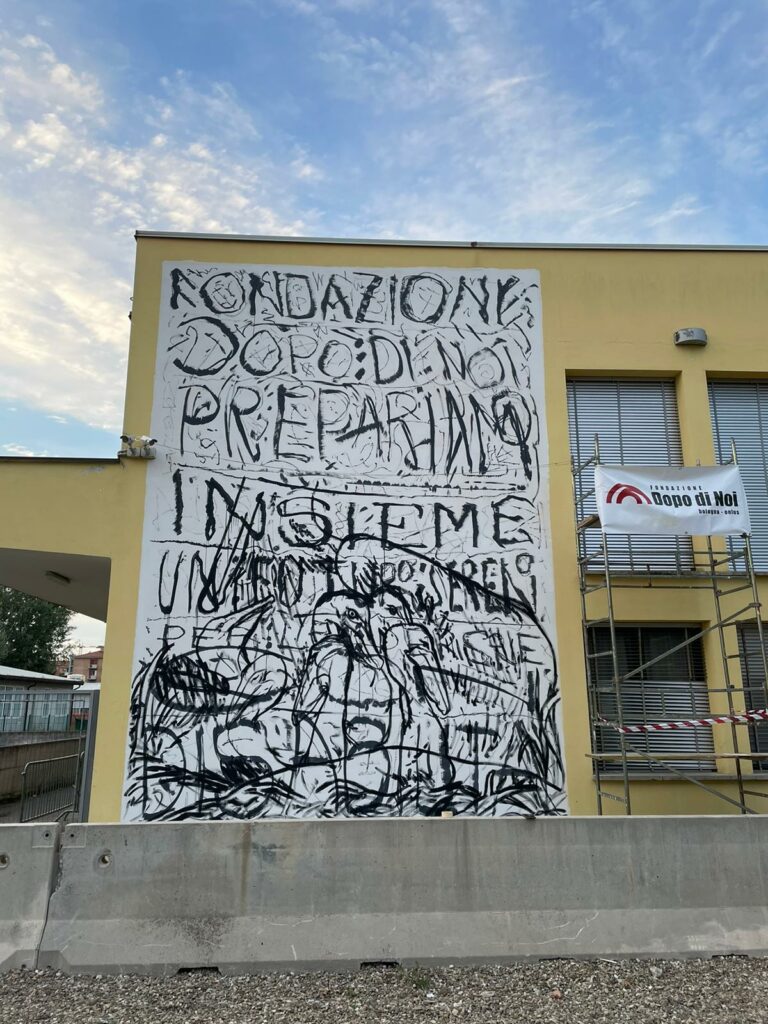 FONDAZIONE
DOPO:DI:NOI
PREPARIAMO
INSIEME
UN SERENO
PER
DISABILITÀ
FONDAZIONE
Dopo di Noi
bologna - onlus